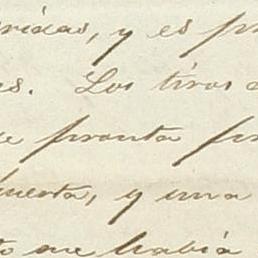 ridas, y es pr
es. Los tiros
e pronta pr
uerta, y una
to me habia